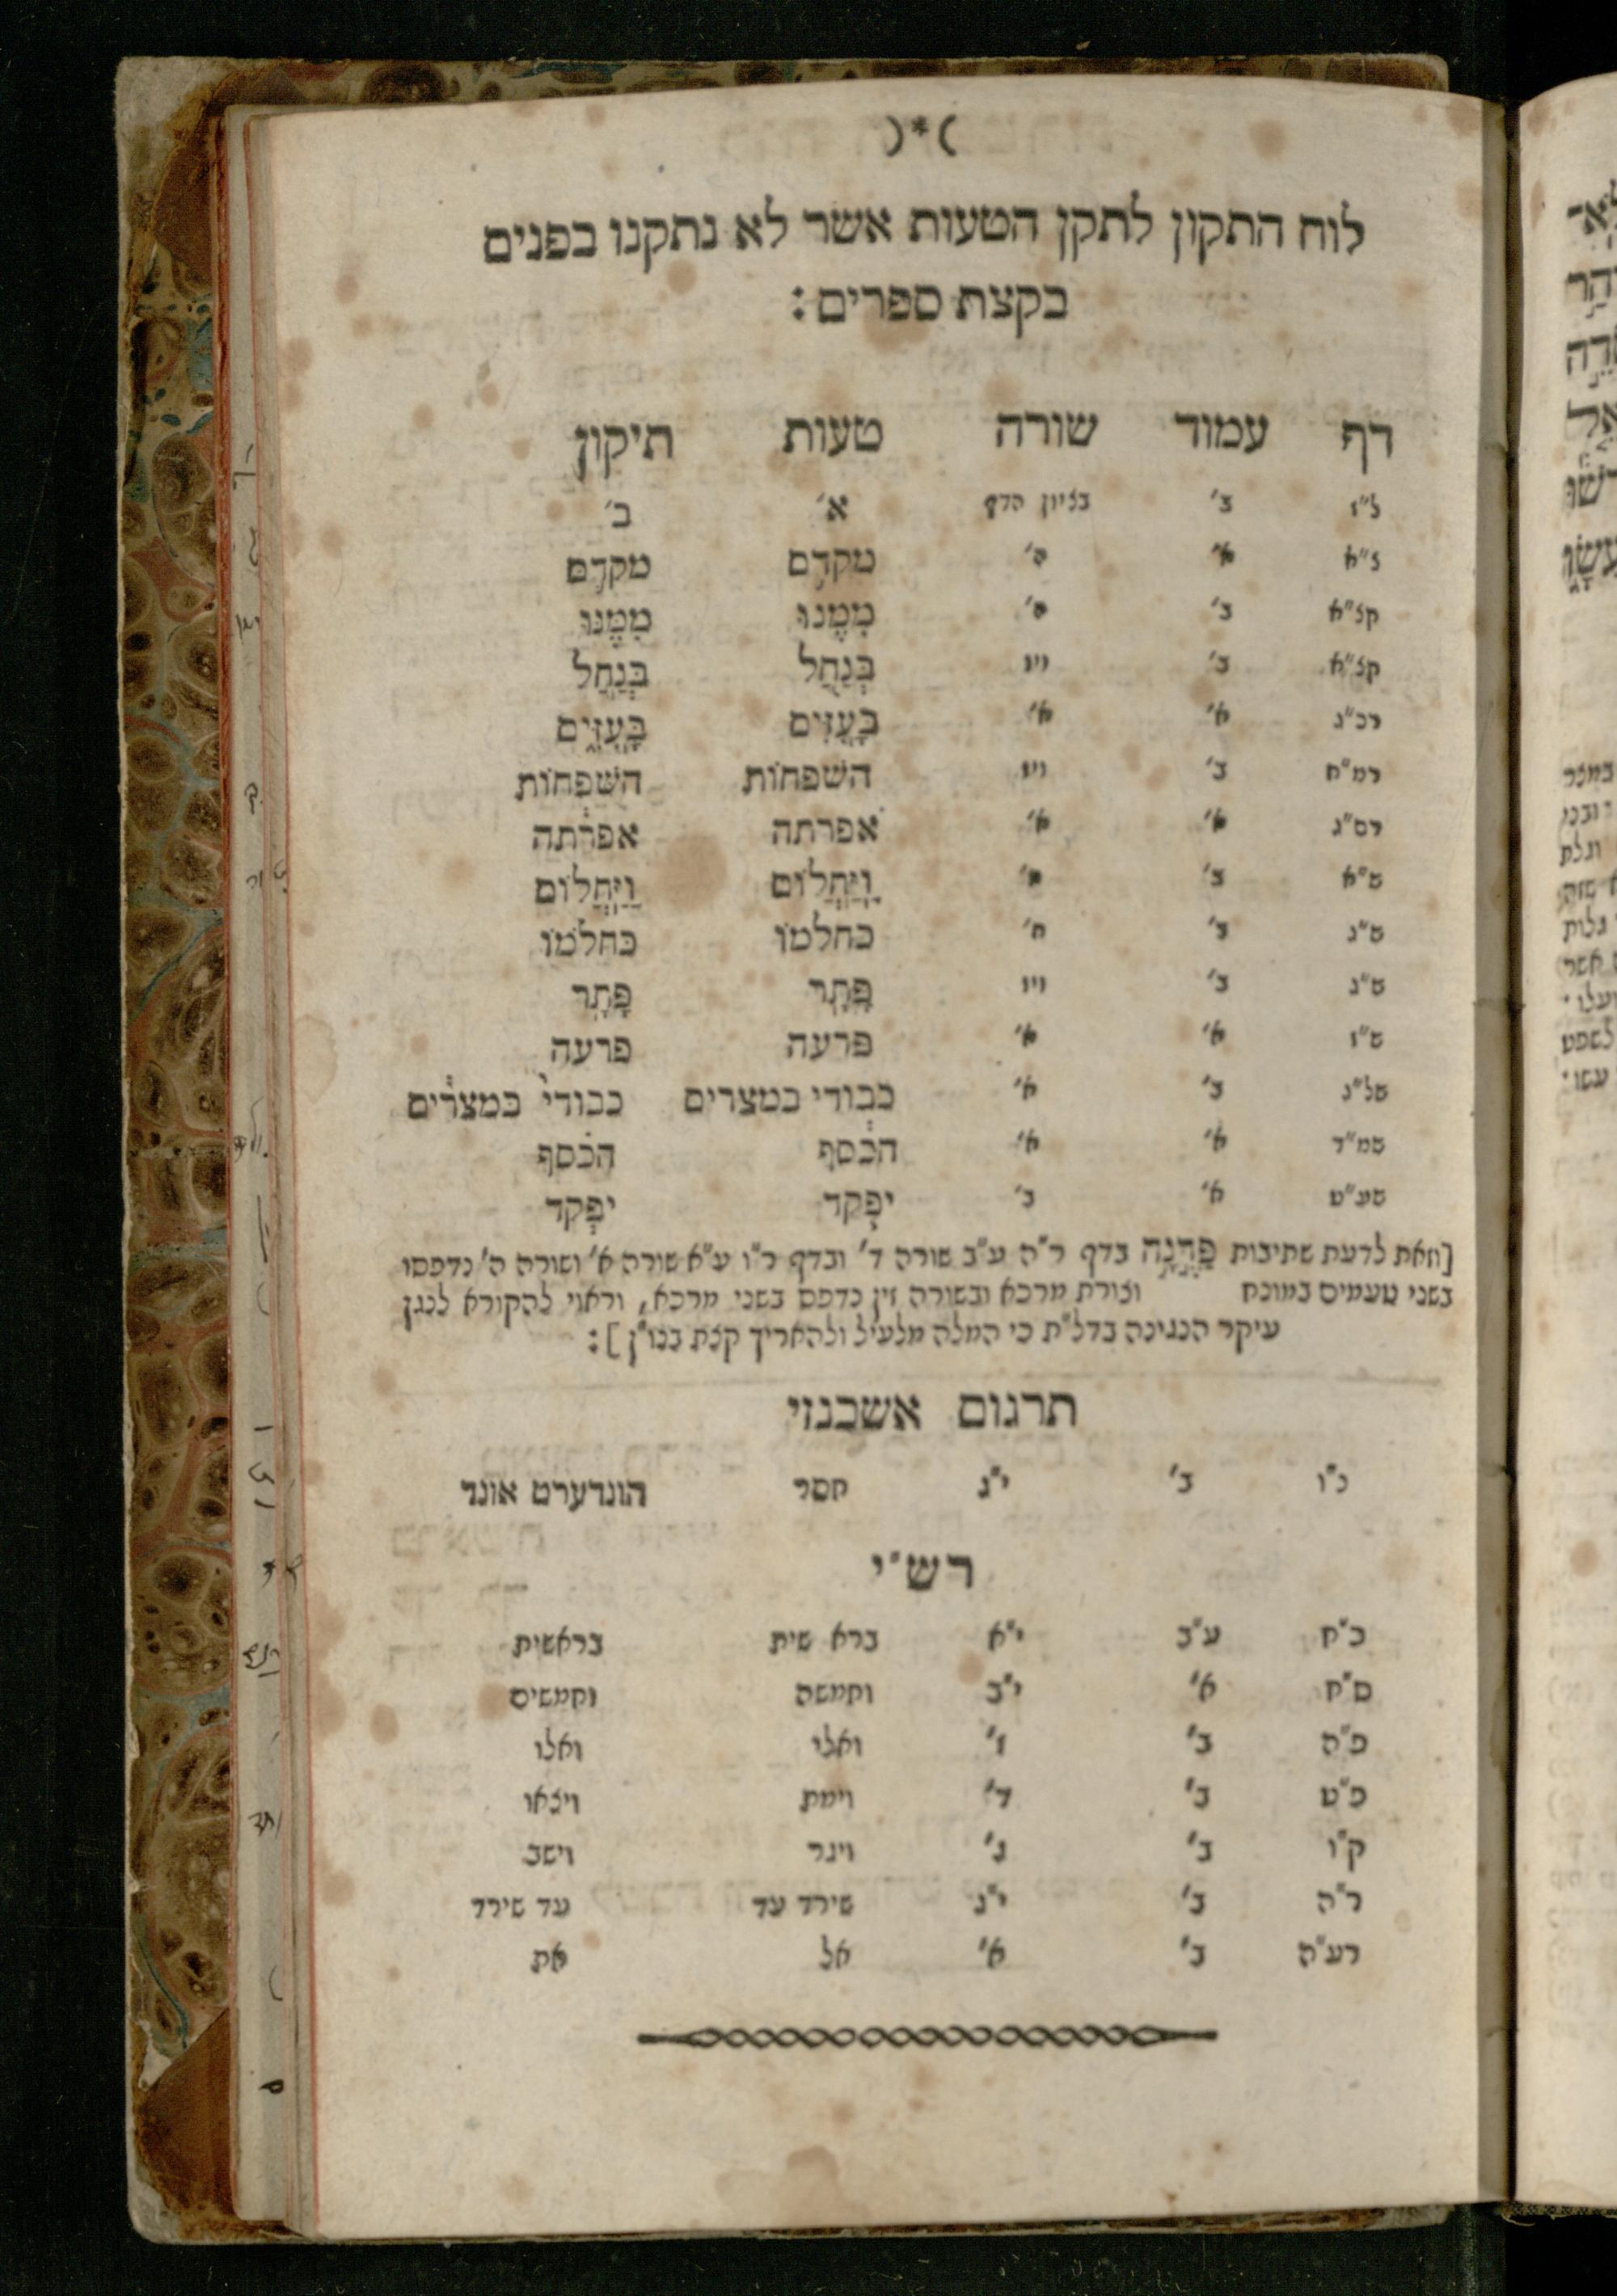 )*(
לוח התקון לתקן הטעות אשר לא נתקנו בפנים
בקצת ספרים:
דף עמוד שורה טעות תיקון
ל"ו ב' בציון הדף א' ב'
ל"א א' ה' מקדם מקדם
קל"א ב' ה' מִמֶנוּ מִמֶנּוּ
קל"א ב' ויו בְּנַחַל בְּנַחַל
רכ"ג א' א' בָּעִזִים בָּעִזִּים
רמ"ח ב' ויו השפחות השפחות
רס"ג א' א' אפרתה אפרתה
ש"א ב' א' וַיַּחֲלוֹם וַיַּחֲלוֹם
ש"ג ב' ח' כחלמו כחלמו
ש"ג ב' ויו פָּתָר פָּתָר
ש"ו א' א' פרעה פרעה
של"ג ב' א' כבודי במצרים כבודי במצרים
שמ"ד א' א' הכסף הכסף
שע"ט א' ב' יפקד יפקד
[וזאת לדעת שתיבות פַּדֶּנָה בדף ר"ה ע"ב שורה ד' ובדף ר"ו ע"א שורה א' ושורה ה' נדפסו
בשני טעמים במונח וצורת מרכא ובשורה זין נדפס בשני מרכא, וראוי להקורא לנגן
עיקר הנגינה בדל"ת כי המלה מלעיל ולהאריך קצת בנו"ן]:
תרגום אשכנזי
כ"ו ב' י"ג חסר הונדערט אונד
רש"י
כ"ח ע"ב י"א ברא שית בראשית
ס"ח א' י"ב וחמשה וחמשים
פ"ה ב' ז' ואלי ואלו
פ"ט ב' ד' וימת ויצאו
ק"ו ב' ג' ויגר וישב
ר"ה ב' י"ג שירד עד עד שירד
רע"ה ב' א' אל את